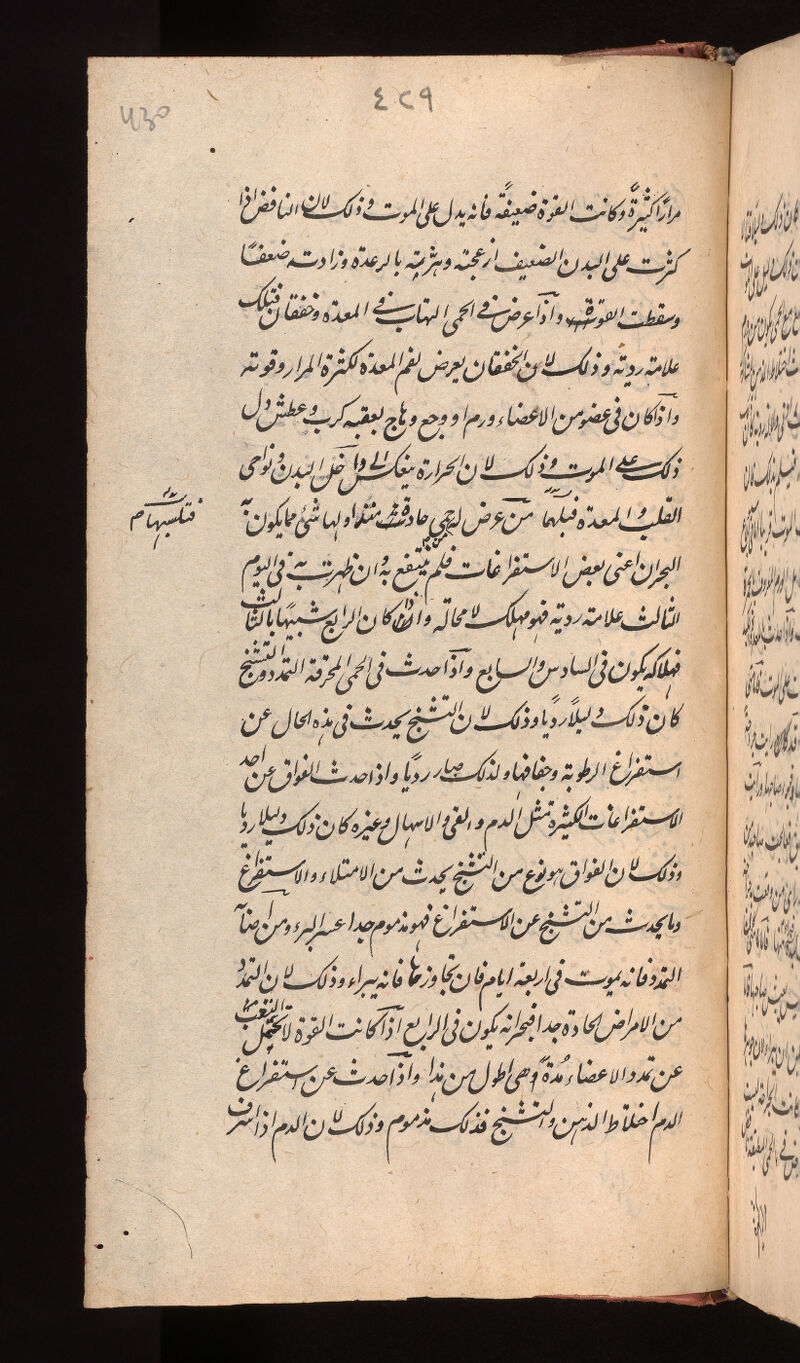 ٤٢٩
430
مرارًا كثيرةً وكانت القوة ضعيفة فانه يدل على الموت وذلك لان النافض اذا
كثرت على البدن الضعيف ازعجته وهزمته بالرعدة وزادت ضعفًا
وسقطت القوة واذا عرض فى الحمى التهاب فى المعدة وخفقان فتلك
علامة ردية وذلك لان الخفقان يعرض لفم المعدة لكثرة المرار وقوته
واذا كان فى عضو من الاعضاء ورم او وجع وهاج بعقبه كرب وعطش دل
ذلك على الموت وذلك لان الحرارة ينعكس الى داخل البدن ونواحى
القلب والمعدة فيلهبها من عرض له حمى حادة منذ اولها شئ مما يكون به
فتلهبها م
البحران اعنى بعض الاستفراغات فلم ينتفع به وان ظهرت به فى اليوم
الثالث علامة ردية فهو مهلك لا محالة وان كان الرابع شبيهًا بالثالث
فهلاكه يكون فى السادس والسابع واذا حدث فى الحمى المحرقة التمدد والتشنج
كان ذلك دليلًا رديا وذلك لان التشنج يحدث فى هذه الحال عن
استفراغ الرطوبة وجفافها ولذلك صار رديًا واذا حدث الفواق عن احد
الاستفراغات الكثيرة مثل الدم والقئ والاسهال وغيره كان ذلك دليلا رديا
وذلك لان الفواق هو نوع من التشنج يحدث من الامتلاء والاستفراغ
وما يحدث من التشنج عن الاستفراغ فهو مذموم جدا عسر البرء ومن اصابه
التمدد فانه يموت فى اربعة ايام فان تجاوزها فانه يبراء وذلك لان التمدد
من الامراض الحادة جدا فبحرانه يكون فى الرابع اذا كانت القوة لا تحتمل التعب
عن تمدد الاعضاء مُدةً وهى اطول من هذا واذا حدث عن استفراغ
الدم اختلاط الذهن والتشنج فذلك مذموم وذلك لان الدم اذا اسرف